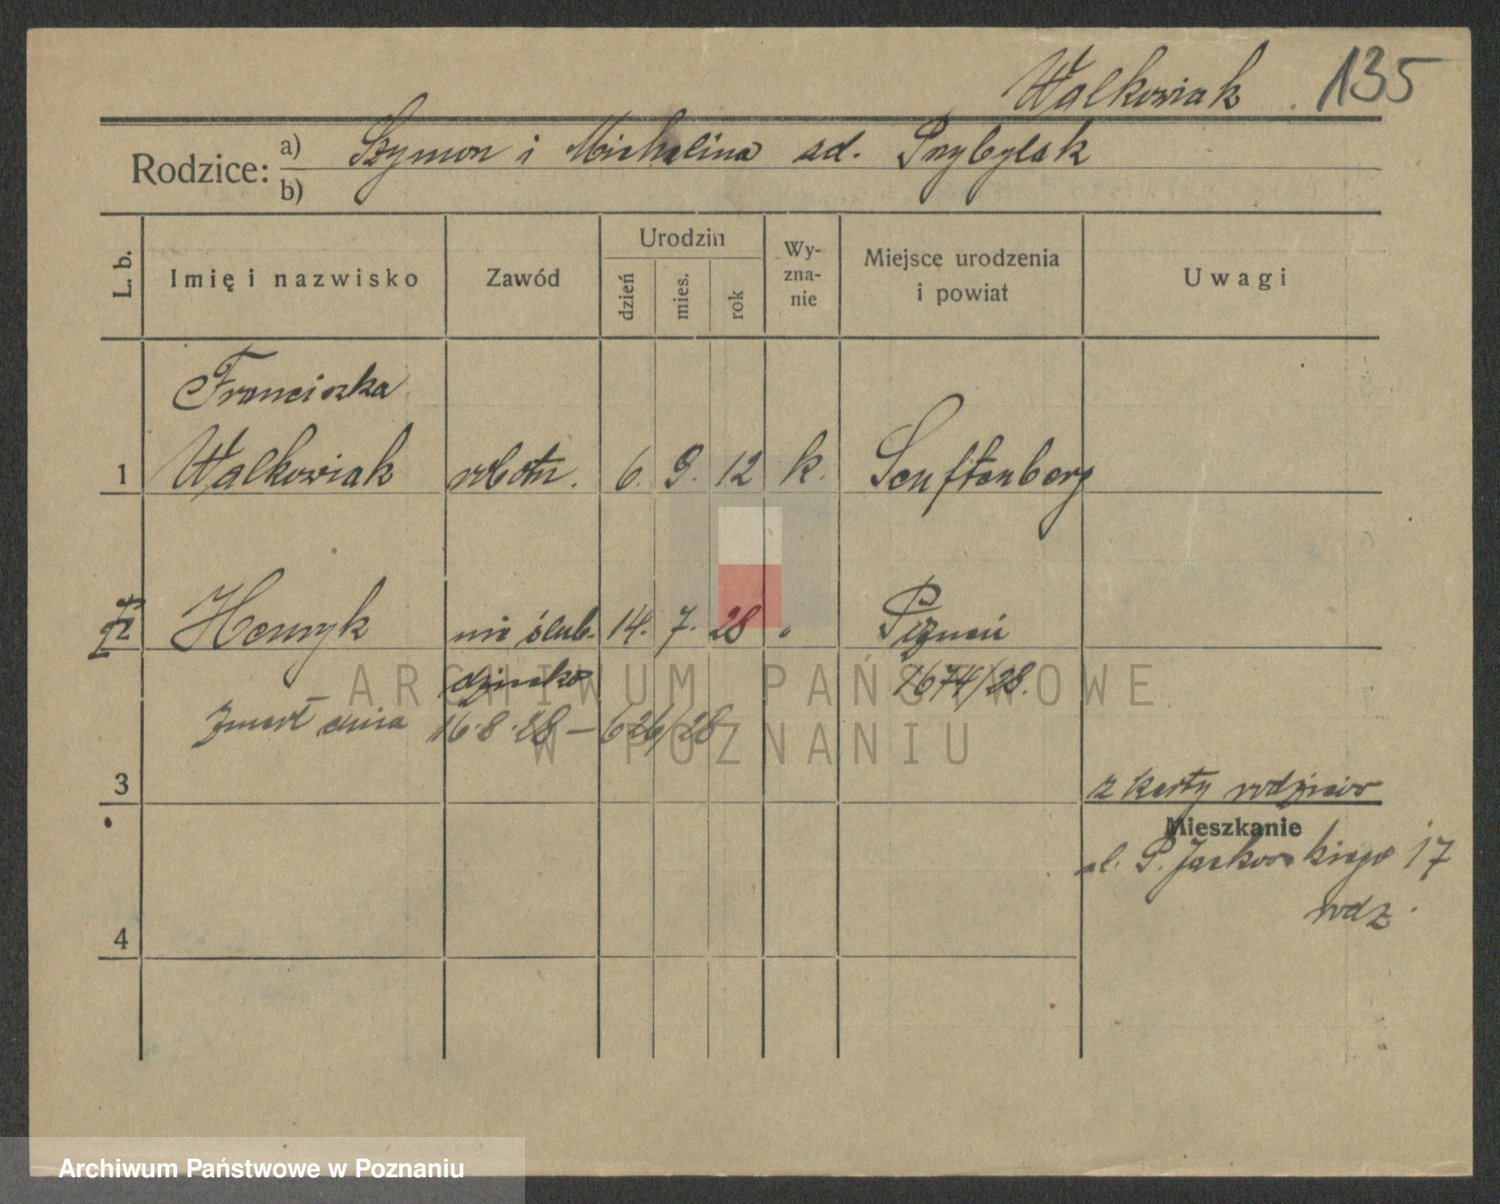 Walkowiak 135
Rodzice: a) Szymon i Michalina zd. Przybylak
b)
L. b.
Imię i nazwisko
Zawód
Urodzin
dzień
mies.
rok
Wy-
zna-
nie
Miejsce urodzenia
i powiat
Uwagi
Franciszka
1 Walkowiak robotn. 6. 9. 12 k. Senftenberg
2 Henryk nie ślub. 14. 7. 28 " Poznań
dziecko 1674/28.
zmarł dnia 16.8.28 – 626/28
ARCHIWUM PAŃSTWOWE
W POZNANIU
3
z karty rodziców
Mieszkanie
ul. P. Jackowskiego 17
rodz.
4
Archiwum Państwowe w Poznaniu